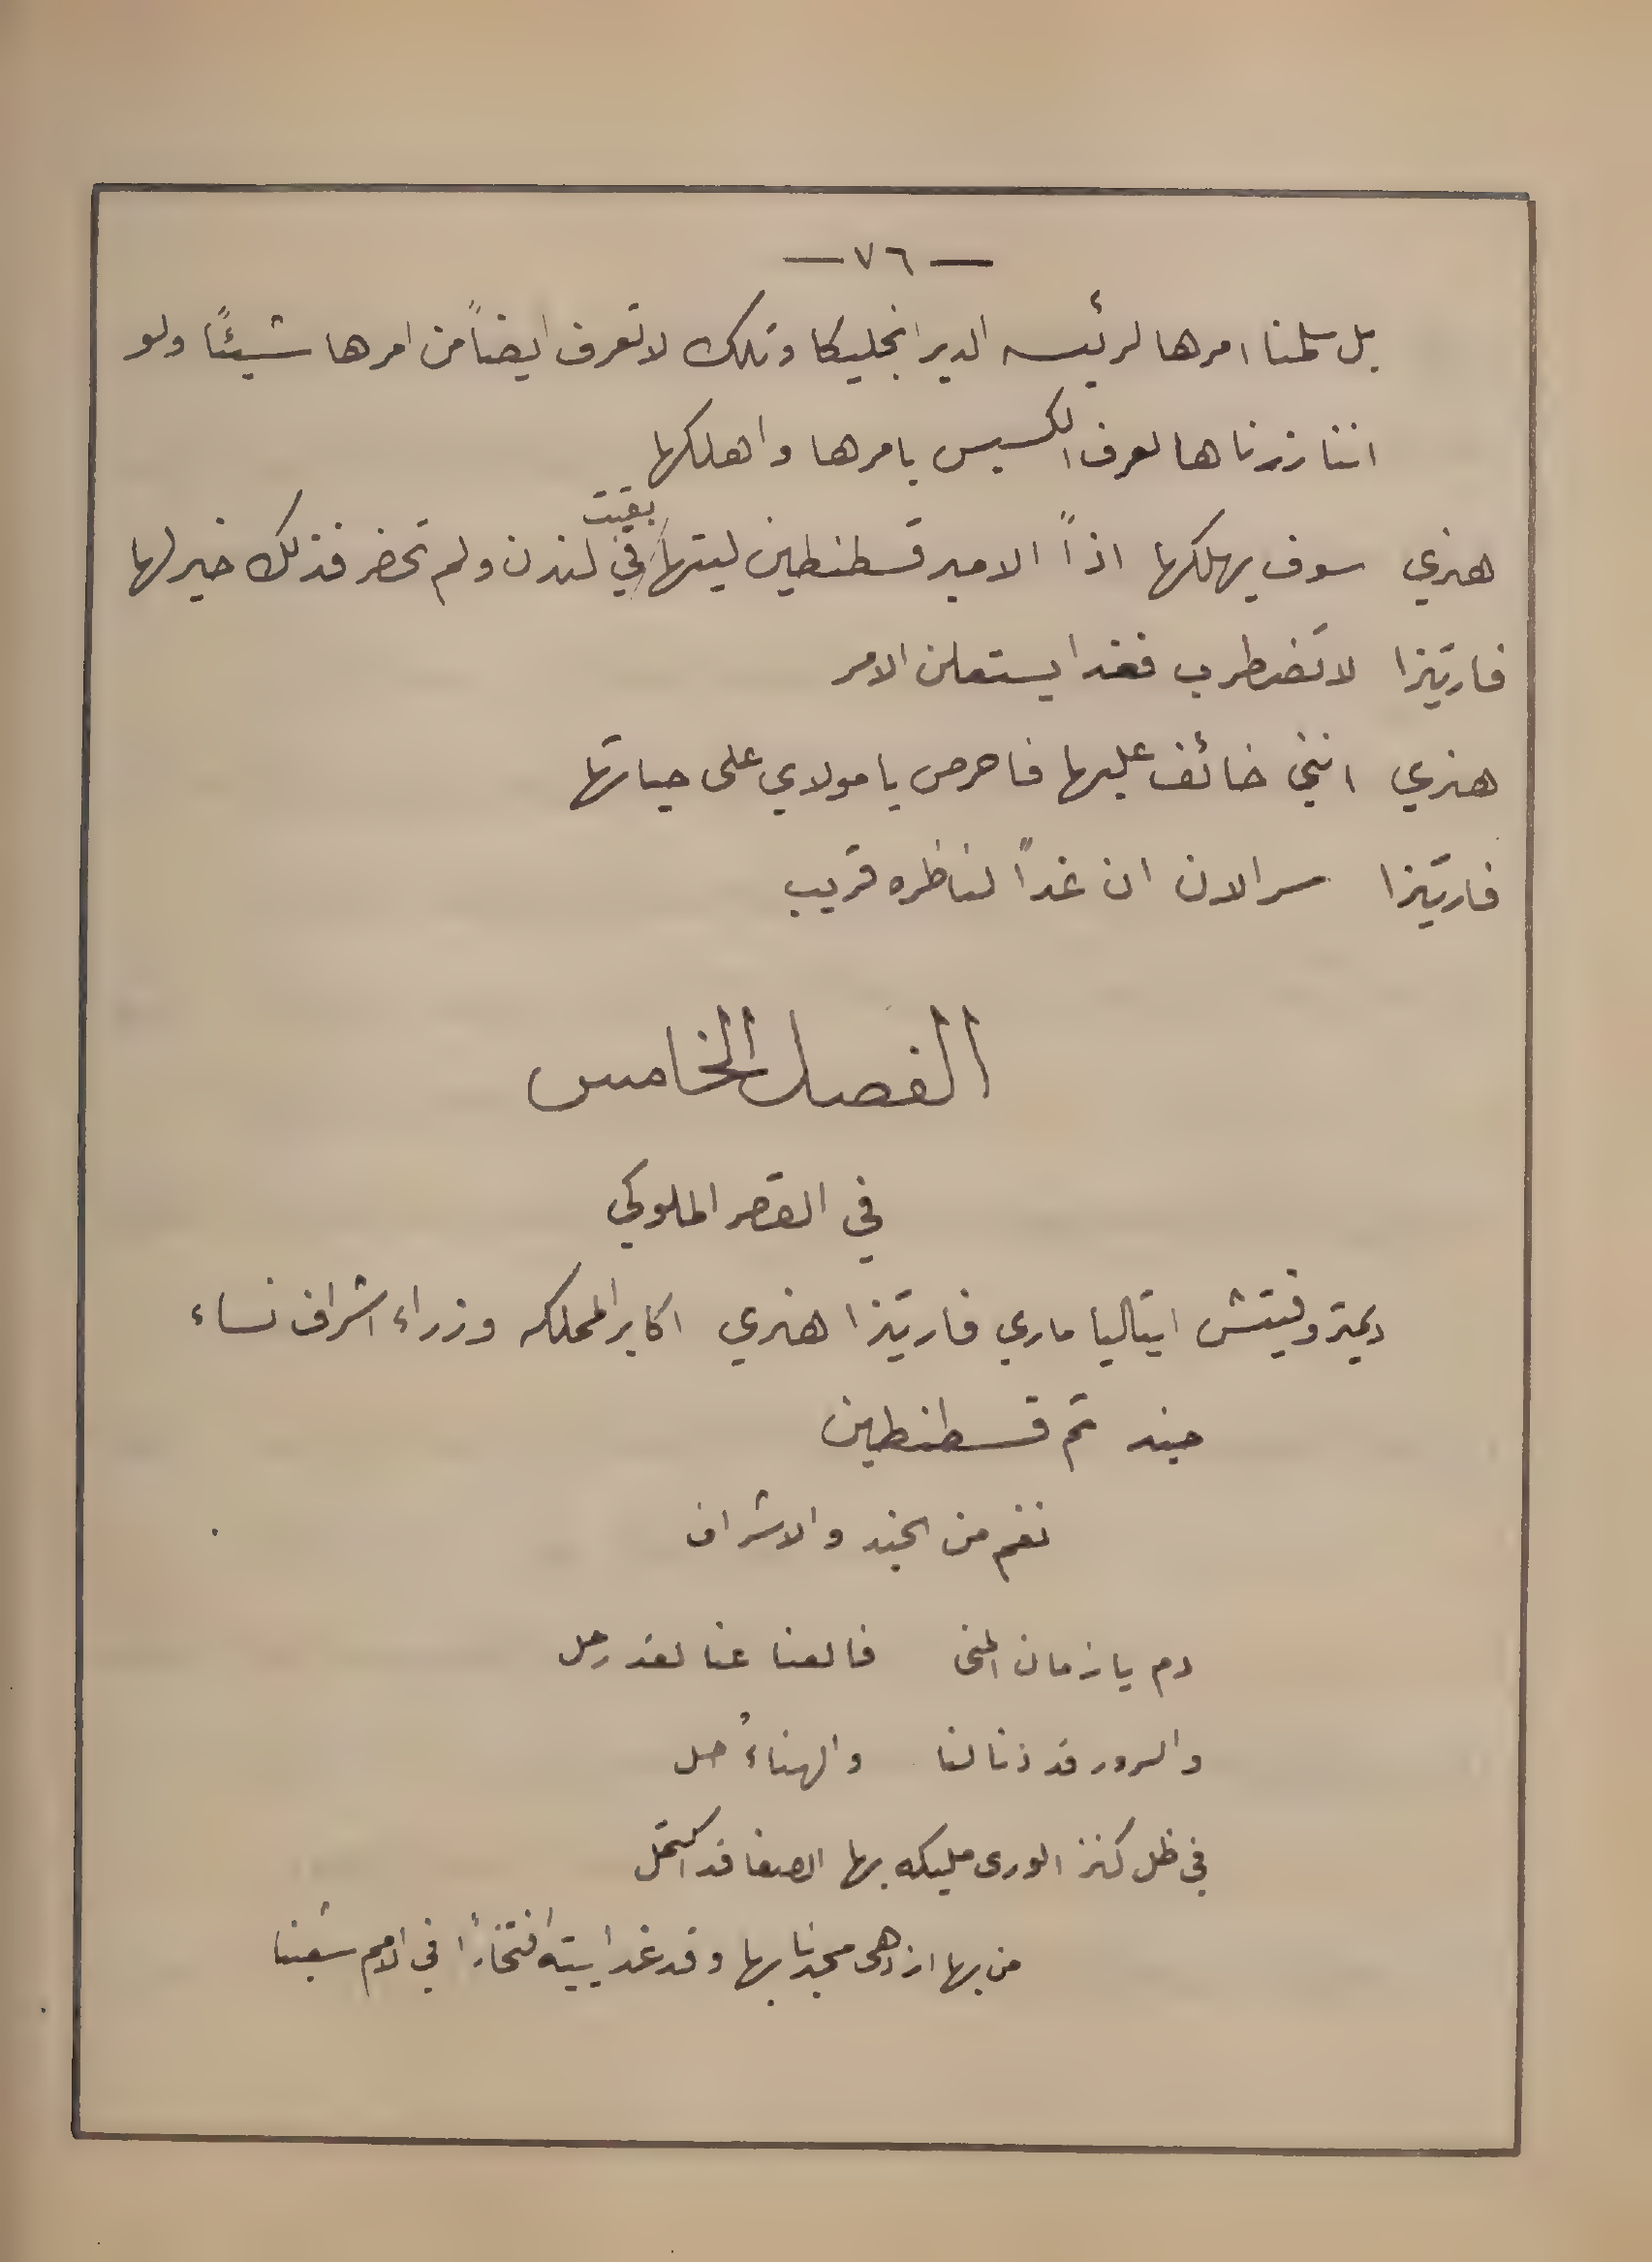 — ٧٦ —
بل سلمنا امرها لرئيسه الدير انجليكا وتلك لا تعرف ايضاً من امرها شيئًا ولو
اننا زرناها لعرف الكسيس بامرها واهلكها
هنري سوف يهلكها اذاً الامير قسطنطين ليتها بقيت في لندن ولم تحضر فذلك خير لها
فارتيزا لا تضطرب فغدا يستعلن الامر
هنري انني خائف عليها فاحرص يا مولاي على حياتها
فارتيزا سر الان ان غداً لناظره قريب
الفصل الخامس
في القصر الملوكي
ديمتروفيتش ايتاليا ماري فارتيزا هنري اكابر المملكه وزراء اشراف نساء
جند ثم قسطنطين
نغم من الجند والاشراف
دم يا زمان المنى فالعنا عنا لقد رحل
والسرور قد دنا لنا والهناءُ حل
في ظل كنز الورى مليكه بها الصفا قد اكتمل
من بها ازدهى مجدنا بها وقد غدا يتيه افتخارًا في الامم شعبنا